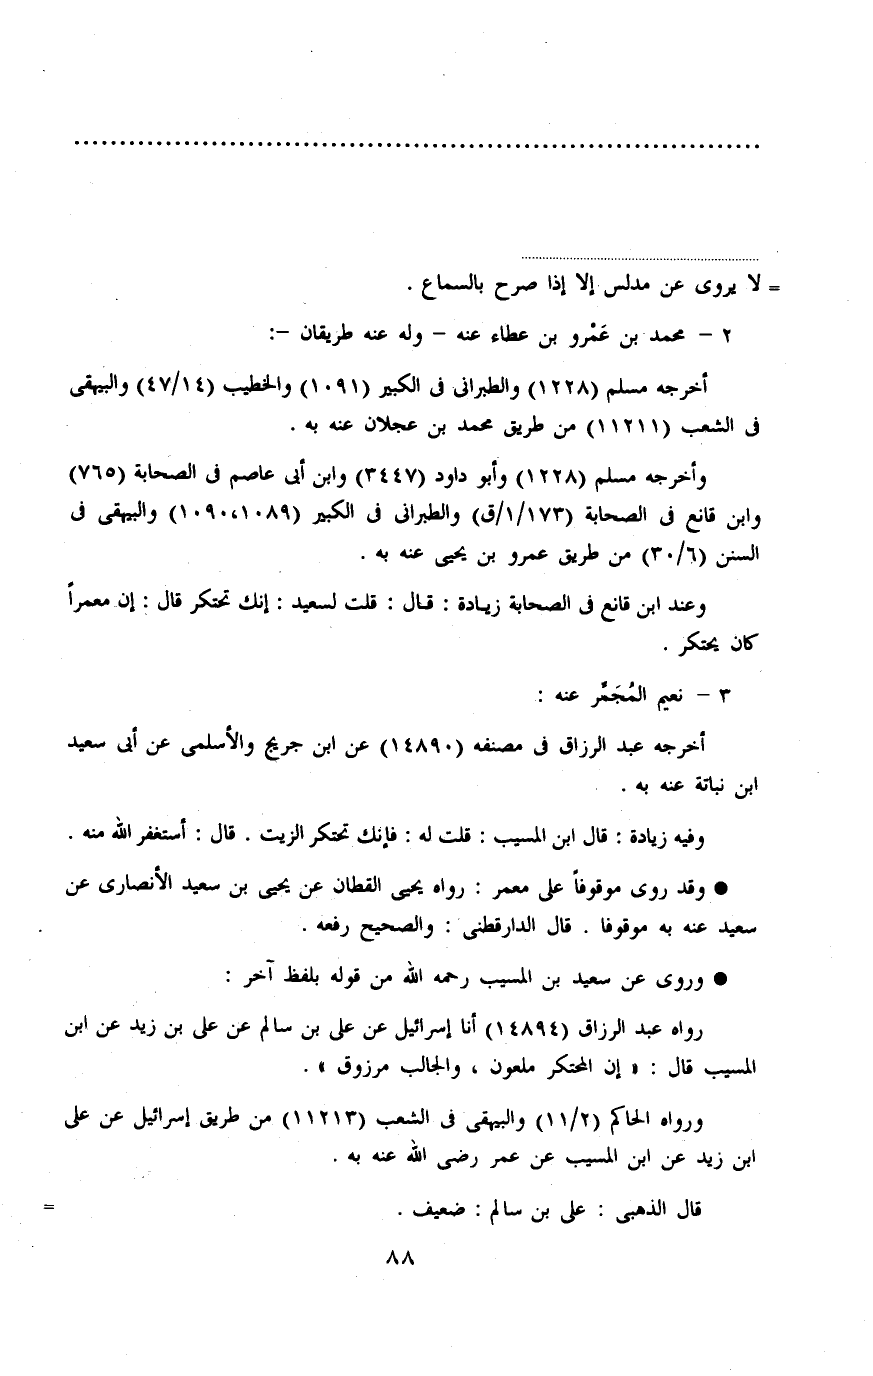 = لا يروى عن مدلس إلا إذا صرح بالسماع .
٢ - محمد بن عَمْرو بن عطاء عنه - وله عنه طريقان -:
أخرجه مسلم (١٢٢٨) والطبرانى فى الكبير (١٠٩١) والخطيب (٤٧/١٤) والبيهقى
فى الشعب (١١٢١١) من طريق محمد بن عجلان عنه به .
وأخرجه مسلم (١٢٢٨) وأبو داود (٣٤٤٧) وابن أبى عاصم فى الصحابة (٧٦٥)
وابن قانع فى الصحابة (١/١٧٣/ق) والطبرانى فى الكبير (١٠٨٩،١٠٩٠) والبيهقى فى
السنن (٣٠/٦) من طريق عمرو بن يحيى عنه به .
وعند ابن قانع فى الصحابة زيادة : قال : قلت لسعيد : إنك تحتكر قال : إن معمراً
كان يحتكر .
٣ - نعيم المُجَمِّر عنه :
أخرجه عبد الرزاق فى مصنفه (١٤٨٩٠) عن ابن جريج والأسلمى عن أبى سعيد
ابن نباتة عنه به .
وفيه زيادة : قال ابن المسيب : قلت له : فإنك تحتكر الزيت . قال : أستغفر الله منه .
● وقد روى موقوفاً على معمر : رواه يحيى القطان عن يحيى بن سعيد الأنصارى عن
سعيد عنه به موقوفا . قال الدارقطنى : والصحيح رفعه .
● وروى عن سعيد بن المسيب رحمه الله من قوله بلفظ آخر :
رواه عبد الرزاق (١٤٨٩٤) أنا إسرائيل عن على بن سالم عن على بن زيد عن ابن
المسيب قال : « إن المحتكر ملعون ، والجالب مرزوق » .
ورواه الحاكم (١١/٢) والبيهقى فى الشعب (١١٢١٣) من طريق إسرائيل عن على
ابن زيد عن ابن المسيب عن عمر رضى الله عنه به .
قال الذهبى : على بن سالم : ضعيف . =
٨٨